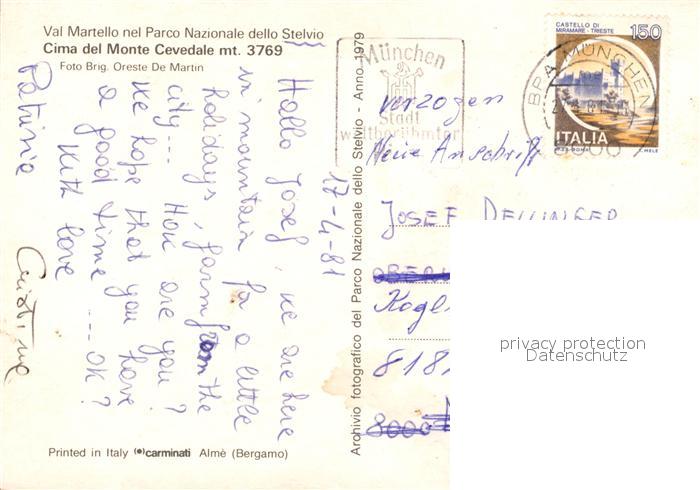 Val Martello nel Parco Nazionale dello Stelvio
Cima del Monte Cevedale mt. 3769
Foto Brig. Oreste De Martin
17-4-81
Hallo Josef, we are here
in mountain for a little
holidays, farm from the
city... How are you?
We hope that you have
a good time .... OK?
With love
Patrizia Cristina
Printed in Italy (•)carminati Almè (Bergamo)
Archivio fotografico del Parco Nazionale dello Stelvio - Anno 1979
München
Stadt
weltberühmter
CASTELLO DI
MIRAMARE - TRIESTE
150
ITALIA
BPA MÜNCHEN
verzogen
Neue Anschrift
JOSEF
Kogl
818
8000
privacy protection
Datenschutz